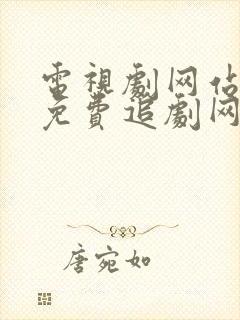 電視劇网站
免費追劇网
唐宛如